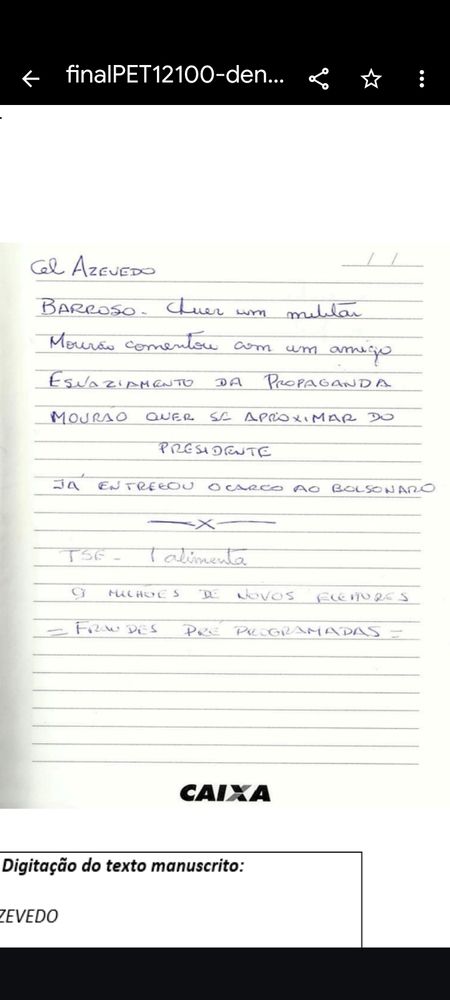 finalPET12100-den...
Cel AZEVEDO
/ /
BARROSO - Quer um militar
Mourão comentou com um amigo
ESVAZIAMENTO DA PROPAGANDA
MOURÃO QUER SE APROXIMAR DO
PRESIDENTE
JÁ ENTREGOU O CARGO AO BOLSONARO
X
TSE - 1 alimenta
9 MILHÕES DE NOVOS ELEITORES
= FRAUDES PRÉ PROGRAMADAS =
CAIXA
Digitação do texto manuscrito:
ZEVEDO